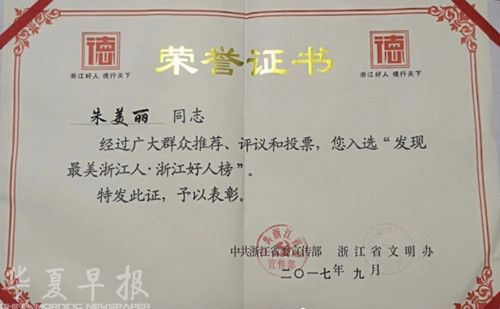 德
浙江好人 德行天下
荣誉证书
德
浙江好人 德行天下
朱美丽 同志
经过广大群众推荐、评议和投票,您入选“发现
最美浙江人·浙江好人榜”。
特发此证,予以表彰。
中共浙江省委宣传部 浙江省文明办
二〇一七年九月
华夏早报
CHINA MORNING NEWSPAPER